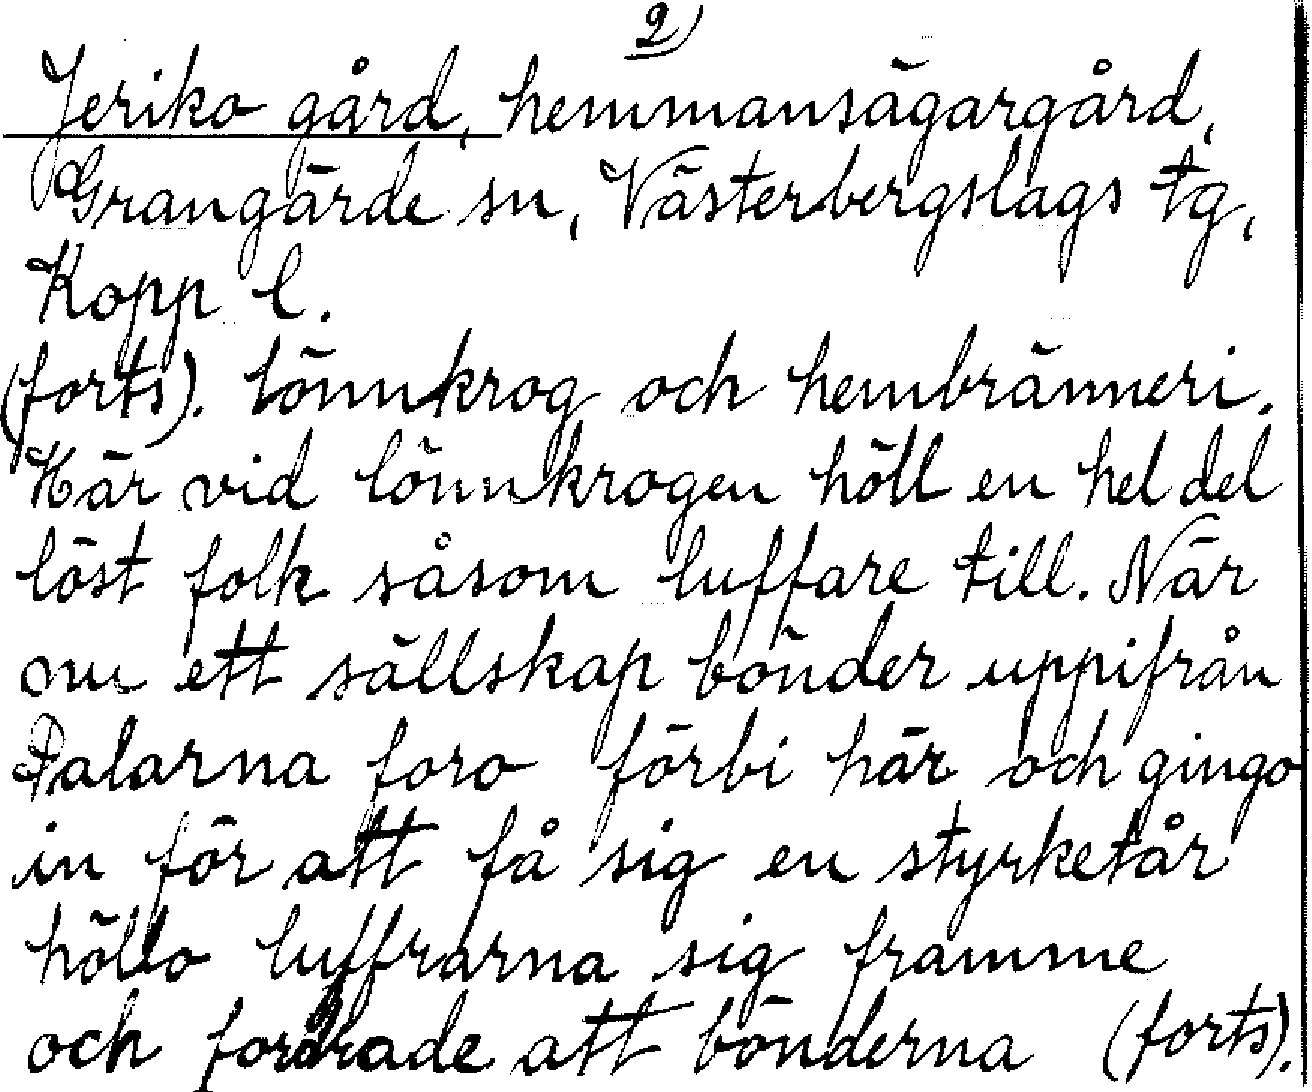 2)
Jeriko gård, hemmansägargård,
Grangärde sn, Västerbergslags tg,
Kopp l.
(forts). lönnkrog och hembränneri.
Här vid lönnkrogen höll en hel del
löst folk såsom luffare till. När
nu ett sällskap bönder uppifrån
Dalarna foro förbi här och gingo
in för att få sig en styrketår
höllo luffrarna sig framme
och fordrade att bönderna (forts).